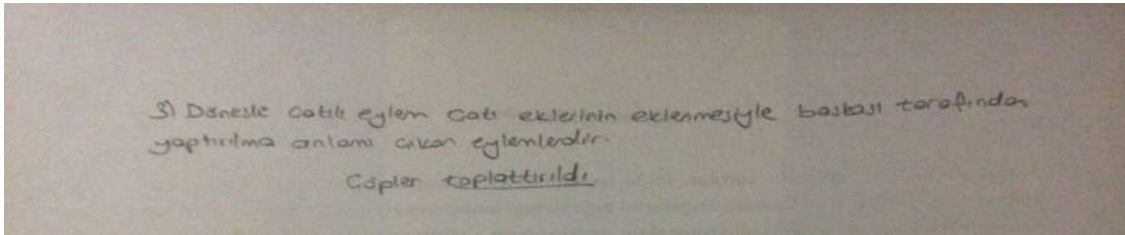 3) Dönesle çatılı eylem çatı eklerinin eklenmesiyle başkası tarafından
yaptırılma anlamı çıkan eylemlerdir.
Çöpler toplattırıldı.